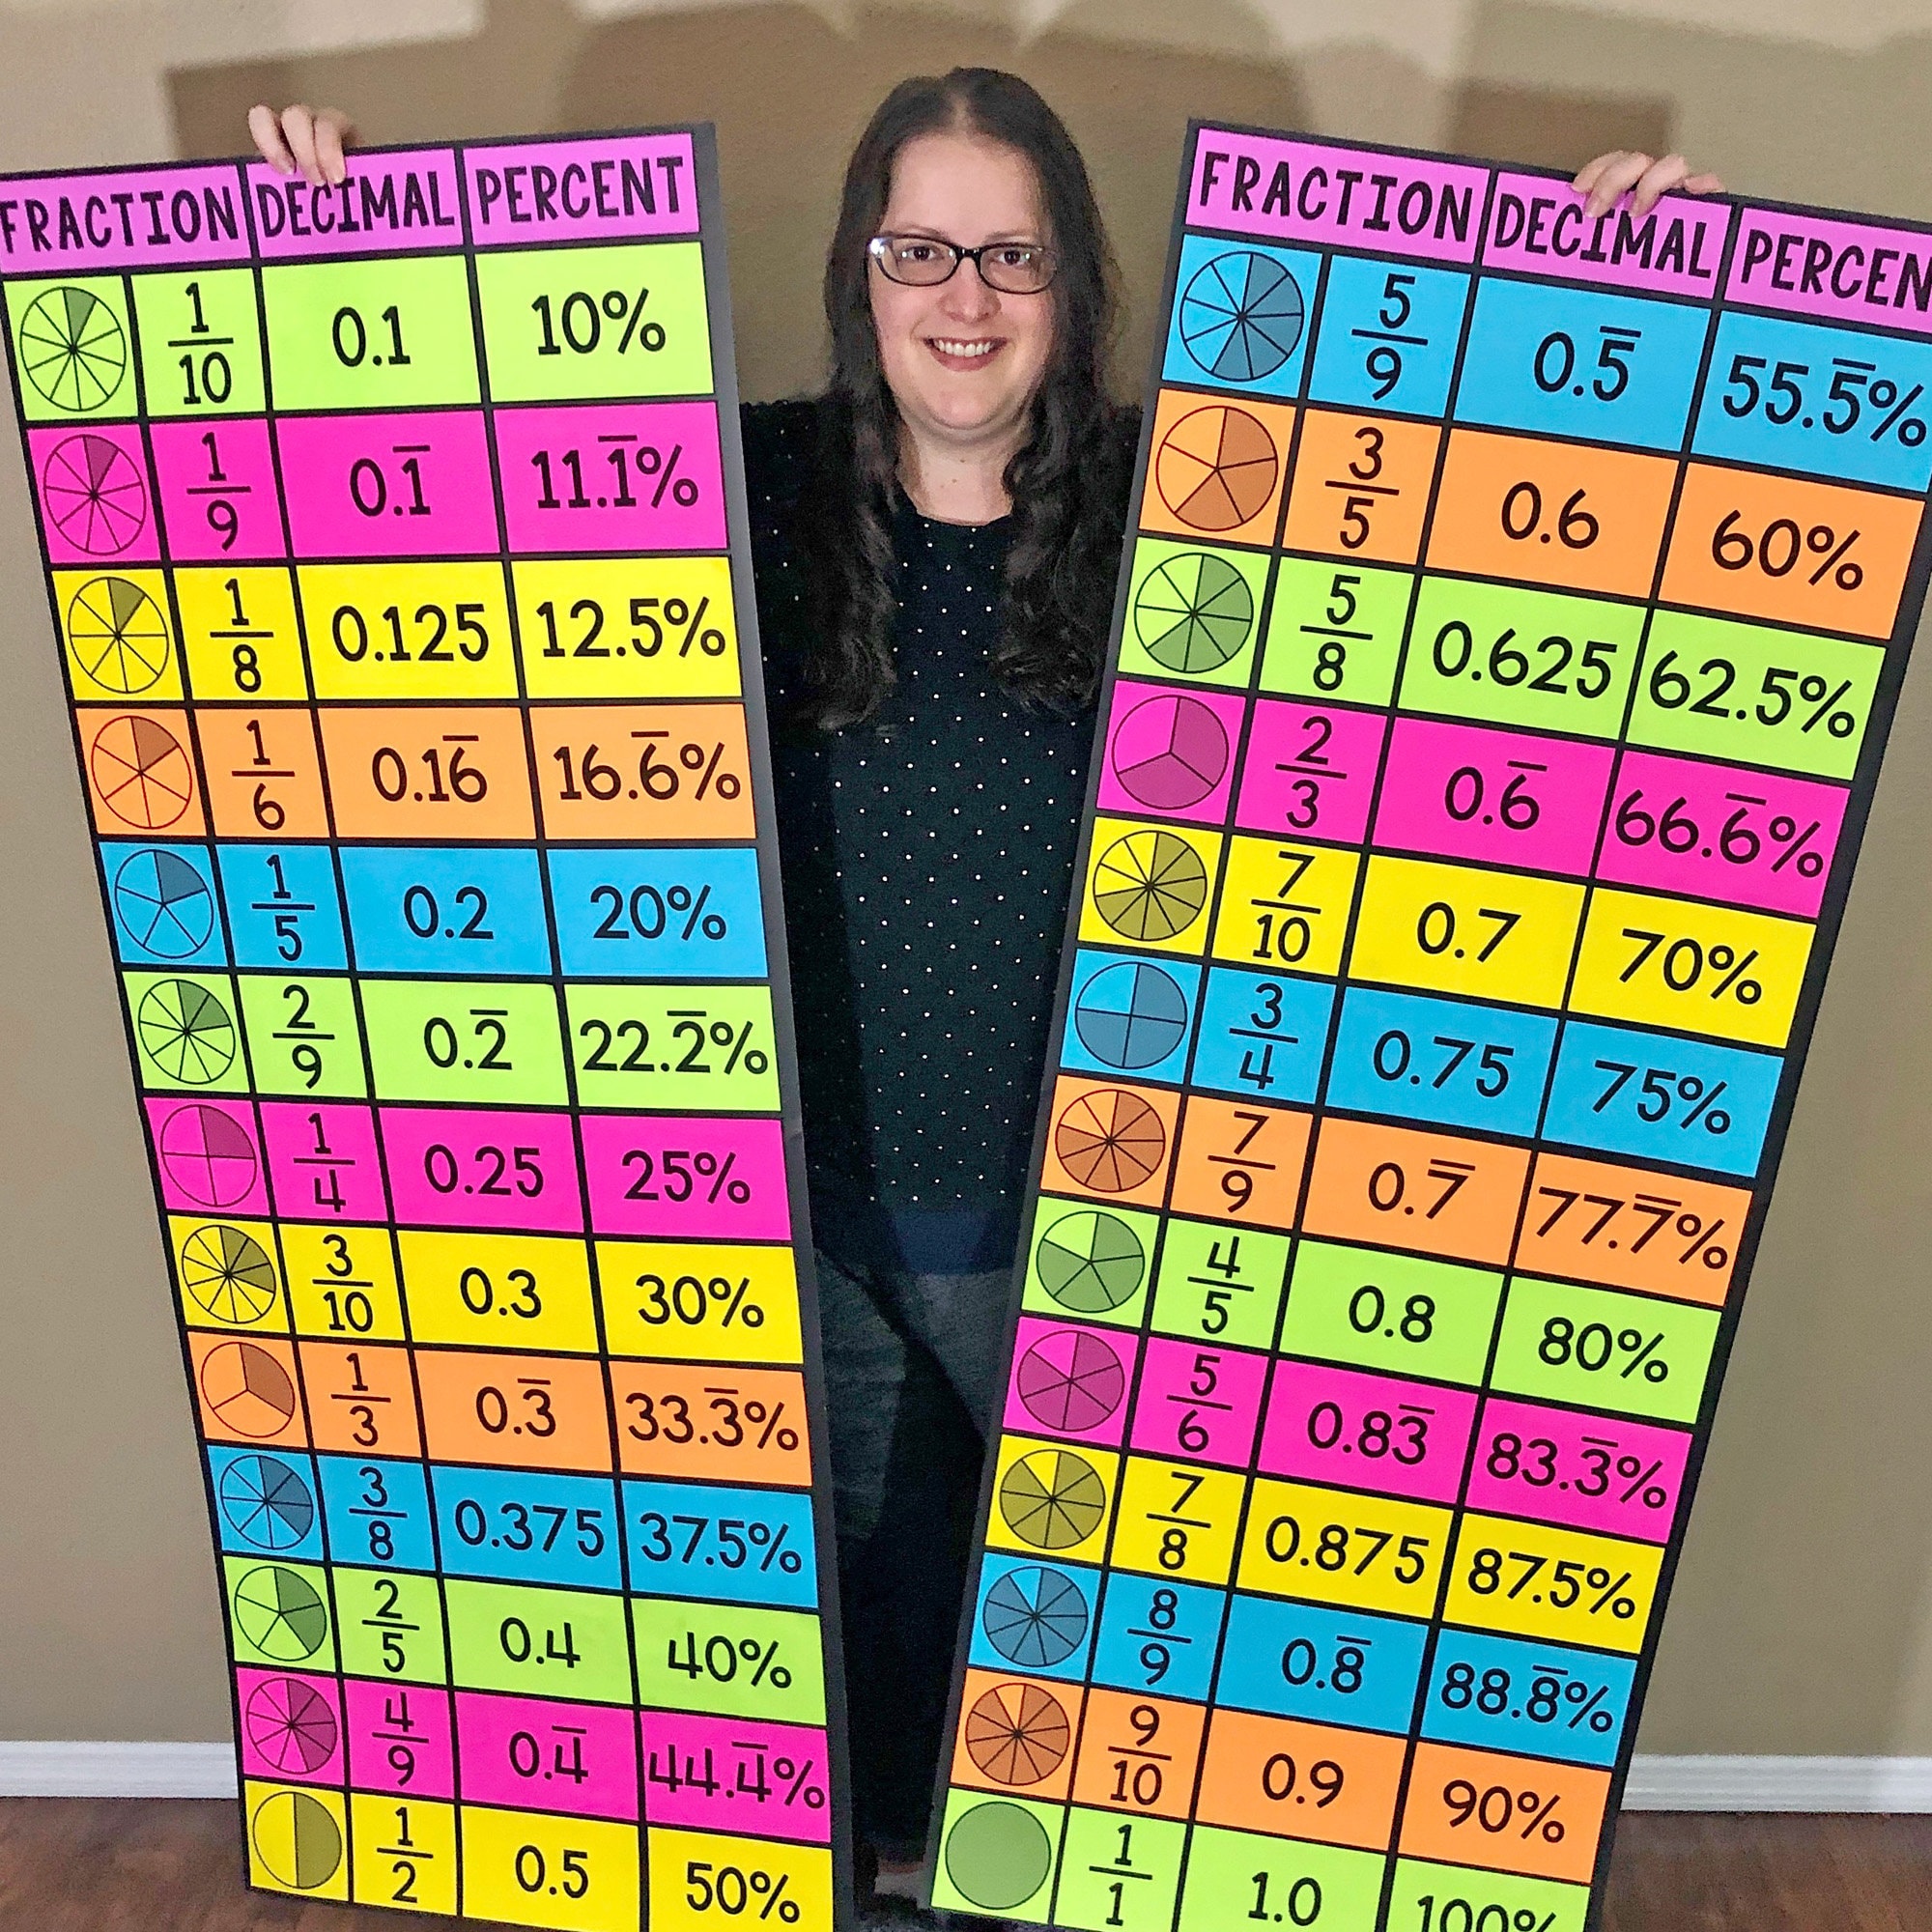 FRACTION DECIMAL PERCENT
1/10 0.1 10%
1/9 0.1̅ 11.1̅%
1/8 0.125 12.5%
1/6 0.16̅ 16.6̅%
1/5 0.2 20%
2/9 0.2̅ 22.2̅%
1/4 0.25 25%
3/10 0.3 30%
1/3 0.3̅ 33.3̅%
3/8 0.375 37.5%
2/5 0.4 40%
4/9 0.4̅ 44.4̅%
1/2 0.5 50%
FRACTION DECIMAL PERCEN
5/9 0.5̅ 55.5̅%
3/5 0.6 60%
5/8 0.625 62.5%
2/3 0.6̅ 66.6̅%
7/10 0.7 70%
3/4 0.75 75%
7/9 0.7̅ 77.7̅%
4/5 0.8 80%
5/6 0.83̅ 83.3̅%
7/8 0.875 87.5%
8/9 0.8̅ 88.8̅%
9/10 0.9 90%
1/1 1.0 100%